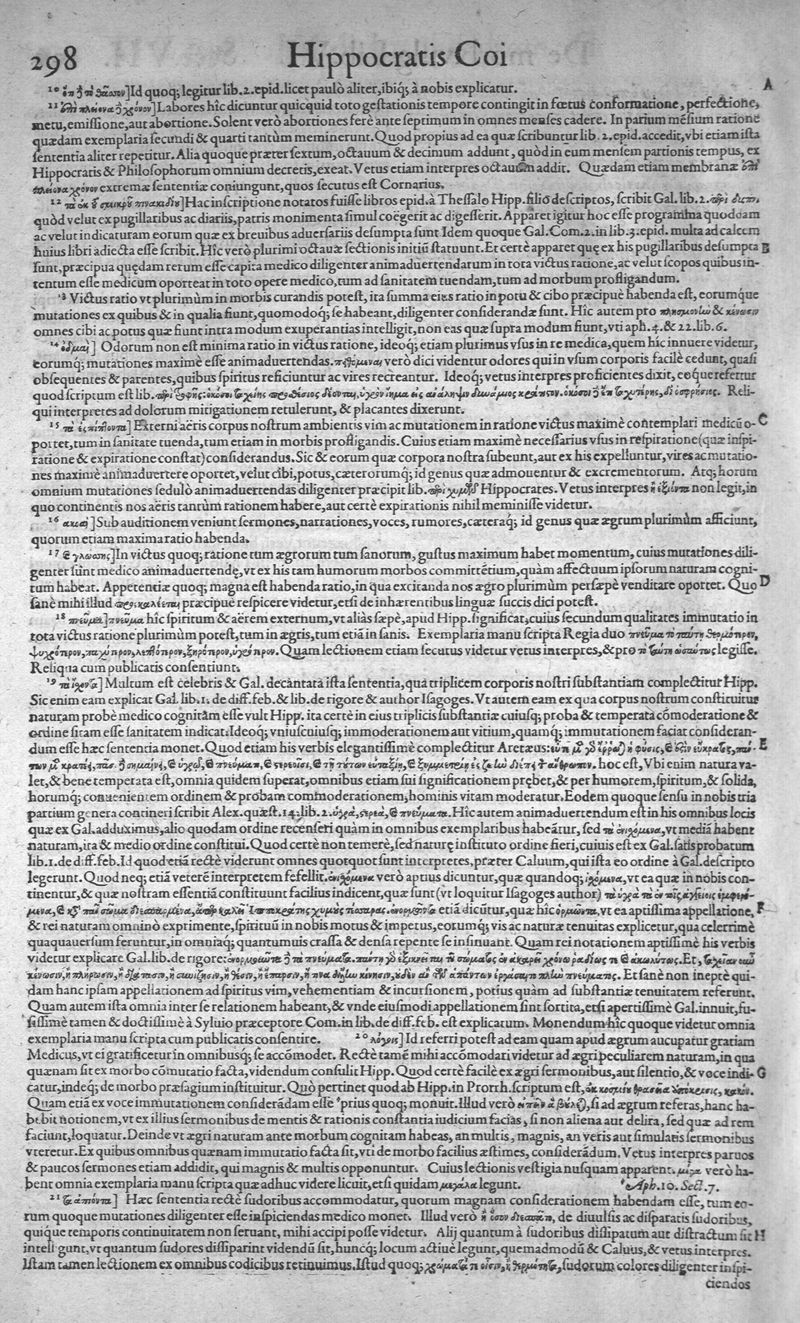 298 Hippocratis Coi
Id quoq; legitur lib.2.epid.licet paulò aliter,ibiq; à nobis explicatur. A
11 Labores hîc dicuntur quicquid toto gestationis tempore contingit in fœtus conformatione, perfectione,
metu,emissione,aut abortione.Solent verò abortiones ferè ante septimum in omnes menses cadere. In parium mēsium ratione
quædam exemplaria secundi & quarti tantùm meminerunt.Quod propius ad ea quæ scribuntur lib.2.epid.accedit,vbi etiam ista
sententia aliter repetitur. Alia quoque præter sextum,octauum & decimum addunt, quòd in eum mensem partionis tempus, ex
Hippocratis & Philosophorum omnium decretis,exeat. Vetus etiam interpres octauum addit. Quædam etiam membranæ
extremæ sententiæ coniungunt,quos secutus est Cornarius.
12 Hac inscriptione notatos fuisse libros epid.à Thessalo Hipp.filio descriptos, scribit Gal.lib.2.
quòd velut ex pugillaribus ac diariis,patris monimenta simul coegerit ac digesserit. Apparet igitur hoc esse programma quoddam
ac velut indicaturam eorum quæ ex breuibus aduersariis desumpta sunt Idem quoque Gal.Com.2.in lib.3.epid.multa ad calcem
huius libri adiecta esse scribit.Hîc verò plurimi octauæ sectionis initiū statuunt.Et certè apparet quę ex his pugillaribus desumpta B
sunt,præcipua quędam rerum esse capita medico diligenter animaduertendarum in tota victus ratione,ac velut scopos quibus in-
tentum esse medicum oporteat in toto opere medico,tum ad sanitatem tuendam,tum ad morbum profligandum.
13 Victus ratio vt plurimùm in morbis curandis potest, ita summa eius ratio in potu & cibo præcipuè habenda est, eorumque
mutationes ex quibus & in qualia fiunt,quomodoq; se habeant,diligenter considerandæ sunt. Hîc autem pro &
omnes cibi ac potus quæ fiunt intra modum exuperantias intelligit,non eas quæ supra modum fiunt,vti aph.4.& 22.lib.6.
14 Odorum non est minima ratio in victus ratione, ideoq; etiam plurimus vsus in re medica,quem hic innuere videtur,
eorumq; mutationes maximè esse animaduertendas. verò dici videntur odores qui in vsum corporis facilè cedunt, quasi
obsequentes & parentes,quibus spiritus reficiuntur ac vires recreantur. Ideoq; vetus interpres proficientes dixit, eoque refertur
quod scriptum est lib. Reli-
qui interpretes ad dolorum mitigationem retulerunt, & placantes dixerunt.
15 Externi aëris corpus nostrum ambientis vim ac mutationem in ratione victus maximè contemplari medicū o- C
portet,tum in sanitate tuenda,tum etiam in morbis profligandis. Cuius etiam maximè necessarius vsus in respiratione(quæ inspi-
ratione & expiratione constat)considerandus. Sic & eorum quæ corpora nostra subeunt,aut ex his expelluntur,vires ac mutatio-
nes maximè animaduertere oportet,velut cibi,potus,cæterorumq; id genus quæ admouentur & excrementorum. Atq; horum
omnium mutationes sedulò animaduertendas diligenter præcipit lib. Hippocrates. Vetus interpres non legit,in
quo continentis nos aëris tantùm rationem habere,aut certè expirationis nihil meminisse videtur.
16 Sub auditionem veniunt sermones,narrationes, voces, rumores,cæteraq; id genus quæ ægrum plurimùm afficiunt,
quorum etiam maxima ratio habenda.
17 In victus quoq; ratione tum ægrorum tum sanorum, gustus maximum habet momentum, cuius mutationes dili-
genter sunt medico animaduertendę, vt ex his tam humorum morbos committētium,quàm affectuum ipsorum naturam cogni-
tum habeat. Appetentiæ quoq; magna est habenda ratio,in qua excitanda nos ægro plurimùm persæpè venditare oportet. Quo D
sanè mihi illud præcipuè respicere videtur,etsi de inhærentibus linguæ succis dici potest.
18 hîc spiritum & aërem externum,vt aliàs sæpè,apud Hipp.significat,cuius secundum qualitates immutatio in
tota victus ratione plurimùm potest,tum in ægris,tum etiā in sanis. Exemplaria manu scripta Regia duo
Quam lectionem etiam secutus videtur vetus interpres,& pro legisse.
Reliqua cum publicatis consentiunt.
19 Multum est celebris & Gal.decantata ista sententia,qua triplicem corporis nostri substantiam complectitur Hipp.
Sic enim eam explicat Gal.lib.1.de diff.feb.& lib.de rigore & author Isagoges.Vt autem eam ex qua corpus nostrum constituitur
naturam probè medico cognitam esse vult Hipp. ita certè in eius triplicis substantiæ cuiusq; proba & temperata cōmoderatione &
ordine sitam esse sanitatem indicat.Ideoq; vniuscuiusq; immoderationem aut vitium,quamq; immutationem faciat consideran-
dum esse hæc sententia monet.Quod etiam his verbis elegantissimè complectitur Aretæus: E
hoc est,Vbi enim natura va-
let,& bene temperata est,omnia quidem superat,omnibus etiam sui significationem prębet,& per humorem,spiritum,& solida,
horumq; conuenientem ordinem & probam commoderationem,hominis vitam moderatur.Eodem quoque sensu in nobis tria
partium genera contineri scribit Alex.quæst.14.lib.2. Hîc autem animaduertendum est in his omnibus locis
quæ ex Gal.adduximus,alio quodam ordine recenseri quàm in omnibus exemplaribus habeātur, sed vt mediā habent
naturam,ita & medio ordine constitui. Quod certè non temerè,sed naturę instituto ordine fieri,cuiuis est ex Gal.satis probatum
lib.1.de diff.feb.Id quod etiā rectè viderunt omnes quotquot sunt interpretes,præter Caluum,qui ista eo ordine à Gal.descripto
legerunt. Quod neq; etiā veterē interpretem fefellit. verò aptius dicuntur,quæ quandoq; vt ea quæ in nobis con-
tinentur,& quæ nostram essentiā constituunt facilius indicent,quæ sunt (vt loquitur Isagoges author)
etiā dicūtur,quæ hîc vt ea aptissima appellatione, F
& rei naturam omninò exprimente,spirituū in nobis motus & impetus,eorumq; vis ac naturæ tenuitas explicetur,qua celerrimè
quaquauersum feruntur,in omniaq; quantumuis crassa & densa repente se insinuant. Quam rei notationem aptissimè his verbis
videtur explicare Gal.lib.de rigore: Et,
Et sanè non ineptè qui-
dam hanc ipsam appellationem ad spiritus vim,vehementiam & incursionem, potius quàm ad substantiæ tenuitatem referunt.
Quam autem ista omnia inter se relationem habeant,& vnde eiusmodi appellationem sint sortita,etsi apertissimè Gal.innuit,fu-
sissimè tamen & doctissimè à Syluio præceptore Com.in lib.de diff.feb.est explicatum. Monendum hîc quoque videtur omnia
exemplaria manu scripta cum publicatis consentire. 20 Id referri potest ad eam quam apud ægrum aucupatur gratiam
Medicus,vt ei gratificetur in omnibusq; se accōmodet. Rectè tamē mihi accōmodari videtur ad ægri peculiarem naturam,in qua
quænam sit ex morbo cōmutatio facta,videndum consulit Hipp. Quod certè facilè ex ægri sermonibus,aut silentio,& voce indi- G
catur,indeq; de morbo præsagium instituitur. Quò pertinet quod ab Hipp.in Prorrh.scriptum est,
Quam etiā ex voce immutationem considerādam esse prius quoq; monuit.Illud verò si ad ægrum referas,hanc ha-
bebit notionem,vt ex illius sermonibus de mentis & rationis constantia iudicium facias, si non aliena aut delira, sed quæ ad rem
faciunt,loquatur. Deinde vt ægri naturam ante morbum cognitam habeas, an multis, magnis, an veris aut simularis sermonibus
vteretur.Ex quibus omnibus quænam immutatio facta sit,vti de morbo facilius æstimes, considerādum. Vetus interpres paruos
& paucos sermones etiam addidit, qui magnis & multis opponuntur. Cuius lectionis vestigia nusquam apparent. verò ha-
bent omnia exemplaria manu scripta quæ adhuc videre licuit,etsi quidam legunt. Aph.10. Sect.7.
21 Hæc sententia rectè sudoribus accommodatur, quorum magnam considerationem habendam esse, tum eo-
rum quoque mutationes diligenter esse inspiciendas medico monet. Illud verò de diuulsis ac disparatis sudoribus,
quique temporis continuitatem non seruant, mihi accipi posse videtur. Alij quantum à sudoribus dissipatum aut distractum sit H
intelligunt,vt quantum sudores dissiparint videndū sit,huncq; locum actiuè legunt,quemadmodū & Caluus,& vetus interpres.
Istam tamen lectionem ex omnibus codicibus retinuimus.Istud quoq; sudorum colores diligenter inspi-
ciendos